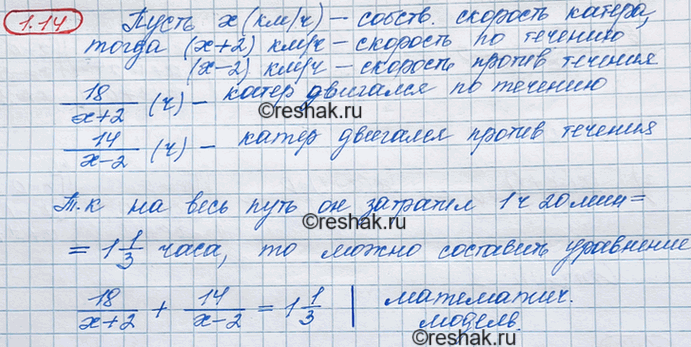 1.14 Пусть x (км/ч) – собств. скорость катера,
тогда (x+2) км/ч – скорость по течению
(x-2) км/ч – скорость против течения
18/(x+2) (ч) – катер двигался по течению
©reshak.ru
14/(x-2) (ч) – катер двигался против течения
Т.к на весь путь он затратил 1ч 20мин =
©reshak.ru
= 1 1/3 часа, то можно составить уравнение
18/(x+2) + 14/(x-2) = 1 1/3 | математич.
модель.
©reshak.ru